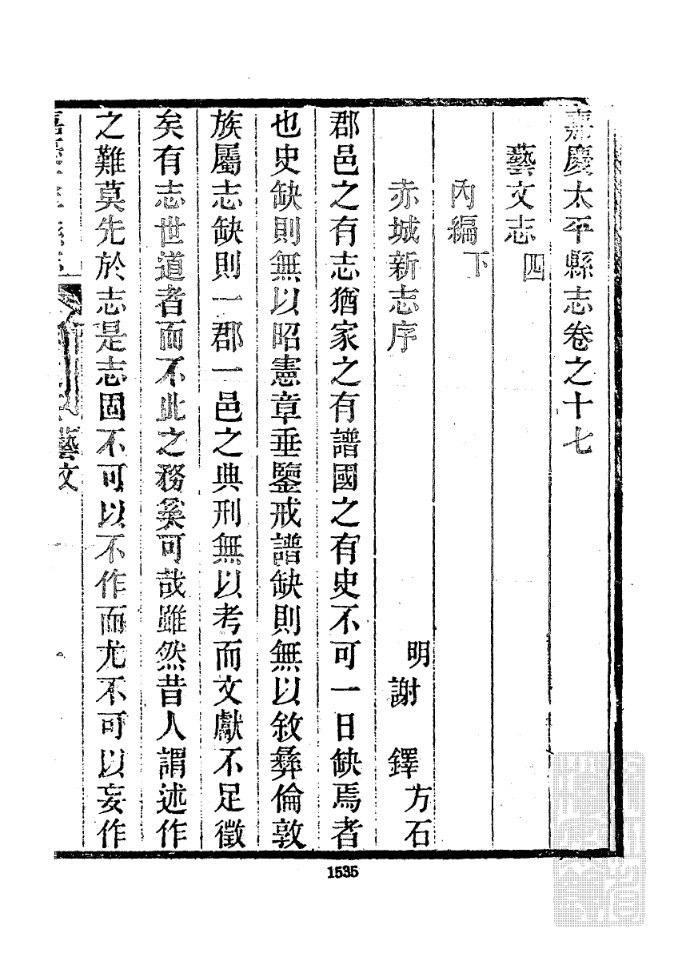 嘉慶太平縣志卷之十七
藝文志四
內編下
赤城新志序
明謝鐸方石
郡邑之有志猶家之有譜國之有史不可一日缺焉者
也史缺則無以昭憲章垂鑒戒譜缺則無以敘彝倫敦
族屬志缺則一郡一邑之典刑無以考而文獻不足徵
矣有志世道者而不此之務奚可哉雖然昔人謂述作
之難莫先於志是志固不可以不作而尤不可以妄作
藝文
1535